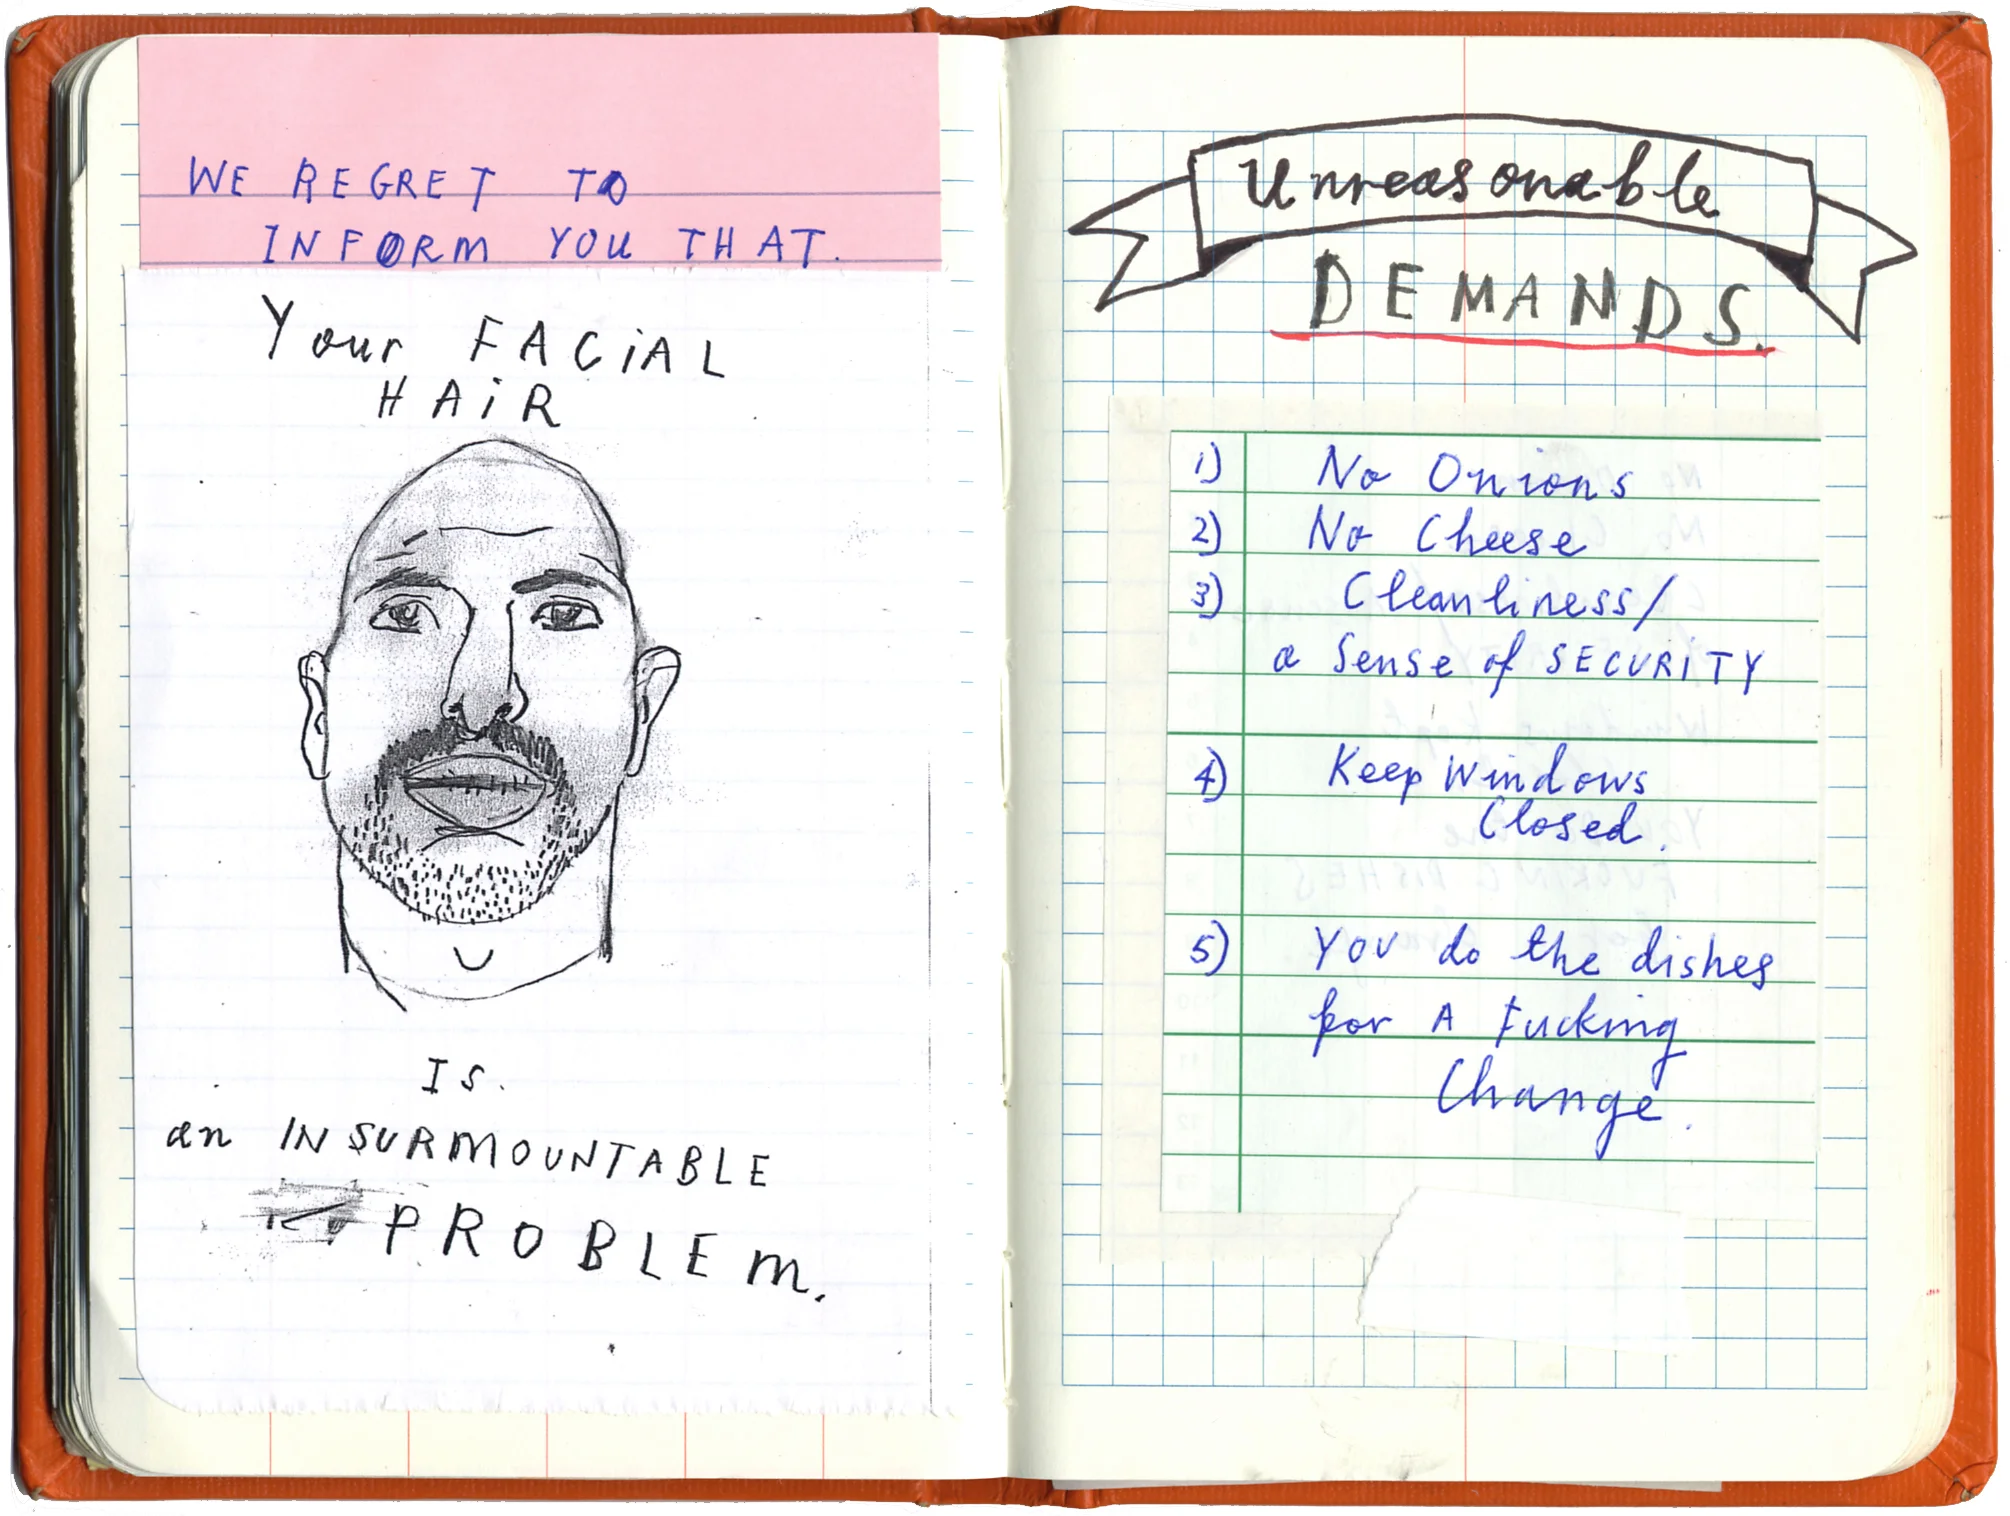 WE REGRET TO
INFORM YOU THAT.
Your FACiAL
HAiR
Is.
an INSURMOUNTABLE
PROBLEm.
Unreasonable
DEMANDS.
1) No Onions
2) No Cheese
3) Cleanliness/
a Sense of SECURiTY
4) Keep Windows
Closed.
5) YOU do the dishes
for A Fucking
Change.